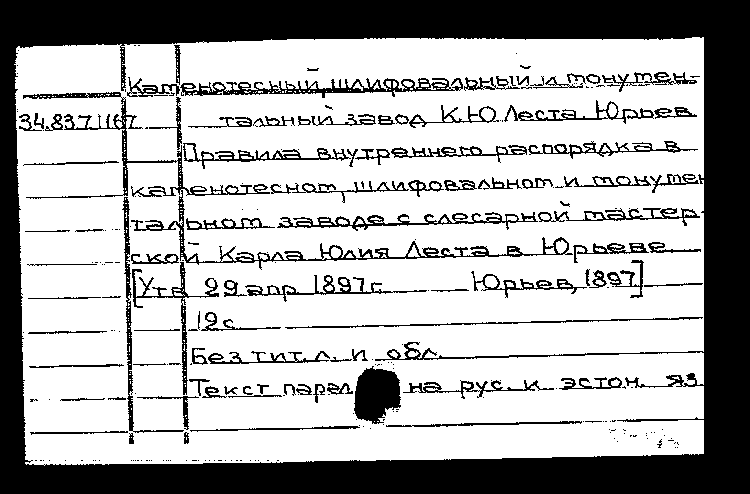 Каменотесный, шлифовальный и монумен-
34.837.1167 тальный завод К.Ю Леста. Юрьев
Правила внутреннего распорядка в
каменотесном, шлифовальном и монумен
тальном заводе с слесарной мастер-
ской Карла Юлия Леста в Юрьеве.
[Утв 29 апр 1897 г. Юрьев, 1897]
12 с
Без тит. л. и обл.
Текст парал на рус. и эстон. яз